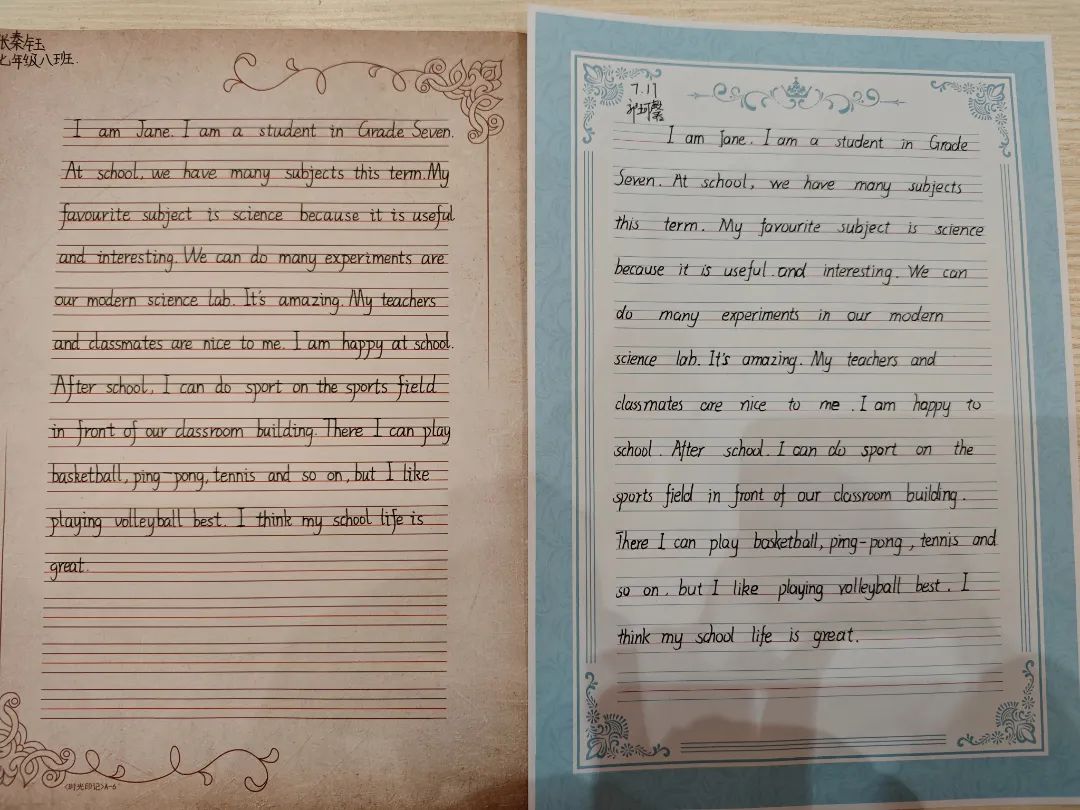 张秦钰
七年级八班.
I am Jane. I am a student in Grade Seven.
At school, we have many subjects this term. My
favourite subject is science because it is useful
and interesting. We can do many experiments are
our modern science lab. It's amazing. My teachers
and classmates are nice to me. I am happy at school.
After school, I can do sport on the sports field
in front of our classroom building. There I can play
basketball, ping-pong, tennis and so on, but I like
playing volleyball best. I think my school life is
great.
《时光印记》A-6
7.17
I am Jane. I am a student in Grade
Seven. At school, we have many subjects
this term. My favourite subject is science
because it is useful. and interesting. We can
do many experiments in our modern
science lab. It's amazing. My teachers and
classmates are nice to me. I am happy to
school. After school. I can do sport on the
sports field in front of our classroom building.
There I can play basketball, ping-pong, tennis and
so on, but I like playing volleyball best. I
think my school life is great.